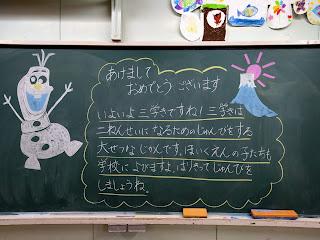 あけまして
おめでとう ございます
いよいよ三学きですね！三学きは
二ねんせいになるためのじゅんびをする
大せつなじかんです。ほいくえんの子たちも
学校によびますよ。はりきってじゅんびを
しましょうね。